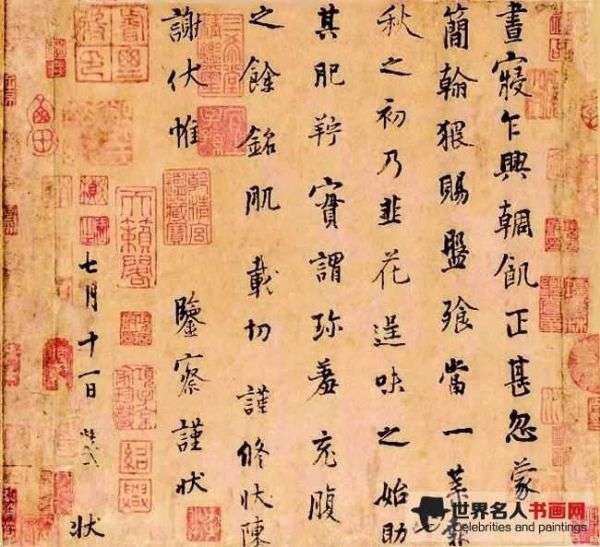 晝寢乍興輖飢正甚忽蒙
簡翰猥賜盤飧當一葉
秋之初乃韭花逞味之始助
其肥羜實謂珍羞充腹
之餘銘肌載切謹修狀陳
謝伏惟鑒察謹狀
七月十一日 狀
天籟閣
乾清宮鑑藏寶
紹興
世界名人书画网
Celebrities and paintings